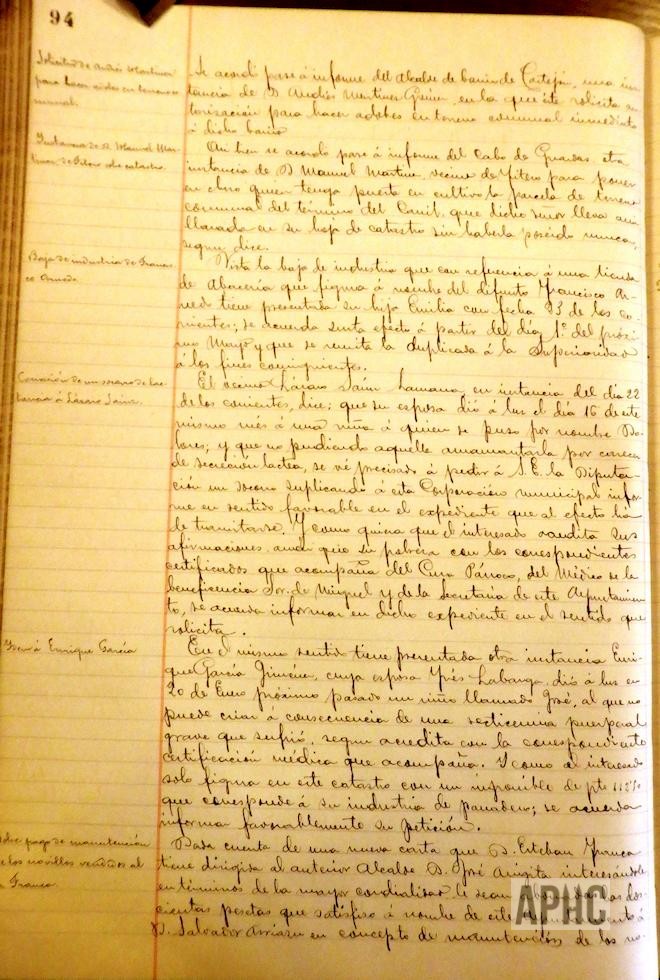 94
Solicitud de Andrés Martínez
para hacer adobes en terreno co
munal.
Se acordó pase á informe del Alcalde de barrio de Castejón, una ins
tancia de D. Andrés Martínez en la que éste solicita au
torización para hacer adobes en terreno comunal inmediato
á dicho barrio.
Instancia de D. Manuel Mar
tínez de Fitero sobre catastro.
Así bien se acordó pase á informe del Cabo de Guardas otra
instancia de D. Manuel Martínez, vecino de Fitero para poner
en claro quien tenga puesta en cultivo la parcela de terreno
comunal del término del que dicho señor lleva
llanada en su hoja de catastro sin haberla poseído nunca,
segun dice.
Baja de industria de Francis
co Arnedo.
Vista la baja de industria que con referencia á una tienda
de Abacería que figura á nombre del difunto Francisco Ar-
nedo tiene presentada su hija Emilia con fecha 23 de los co-
rrientes; se acuerda surta efecto á partir del día 1º del próxi
mo Mayo y que se remita la duplicada á la Superioridad
á los fines consiguientes.
Concesión de un socorro de lac-
tancia á Lázaro Sainz.
El vecino Lázaro Sainz Lamana, en instancia del día 22
de los corrientes, dice; que su esposa dió á luz el día 16 de este
mismo més á una niña á quien se puso por nombre Do-
lores; y que no pudiendo aquella amamantarla por carecer
de secreción lactea, se vé precisado á pedir á S.E. la Diputa-
ción un socorro suplicando á esta Corporación municipal infor
me en sentido favorable en el expediente que al efecto ha
de tramitarse. Y como quiera que el interesado acredita sus
afirmaciones, asi como su pobreza con los correspondientes
certificados que acompaña del Cura Párroco, del Médico de la
beneficencia Sor. de Miguel y de la Secretaría de este Ayuntamien
to, se acuerda informar en dicho expediente en el sentido que
solicita.
Idem á Enrique García
En el mismo sentido tiene presentada otra instancia Enri-
que García Jiménez, cuya esposa Inés Labarga, dió á luz en
20 de Enero próximo pasado un niño llamado José, al que no
puede criar á consecuencia de una septicemia puerperal
grave que sufrió, segun acredita con la correspondiente
certificación médica que acompaña. Y como el interesado
solo figura en este catastro con un imponible de pts
que corresponde á su industria de panadero; se acuerda
informar favorablemente su petición.
Sobre pago de manutención
de los novillos vendidos al
Sr. Franca.
Dada cuenta de una nueva carta que D. Esteban
tiene dirigida al anterior Alcalde D. José interesándole
en términos de la mayor cordialidad le sean las dos-
cientas pesetas que satisfizo á nombre de este Ayuntamiento á
D. Salvador Arriazu en concepto de manutención de los no-
APHC